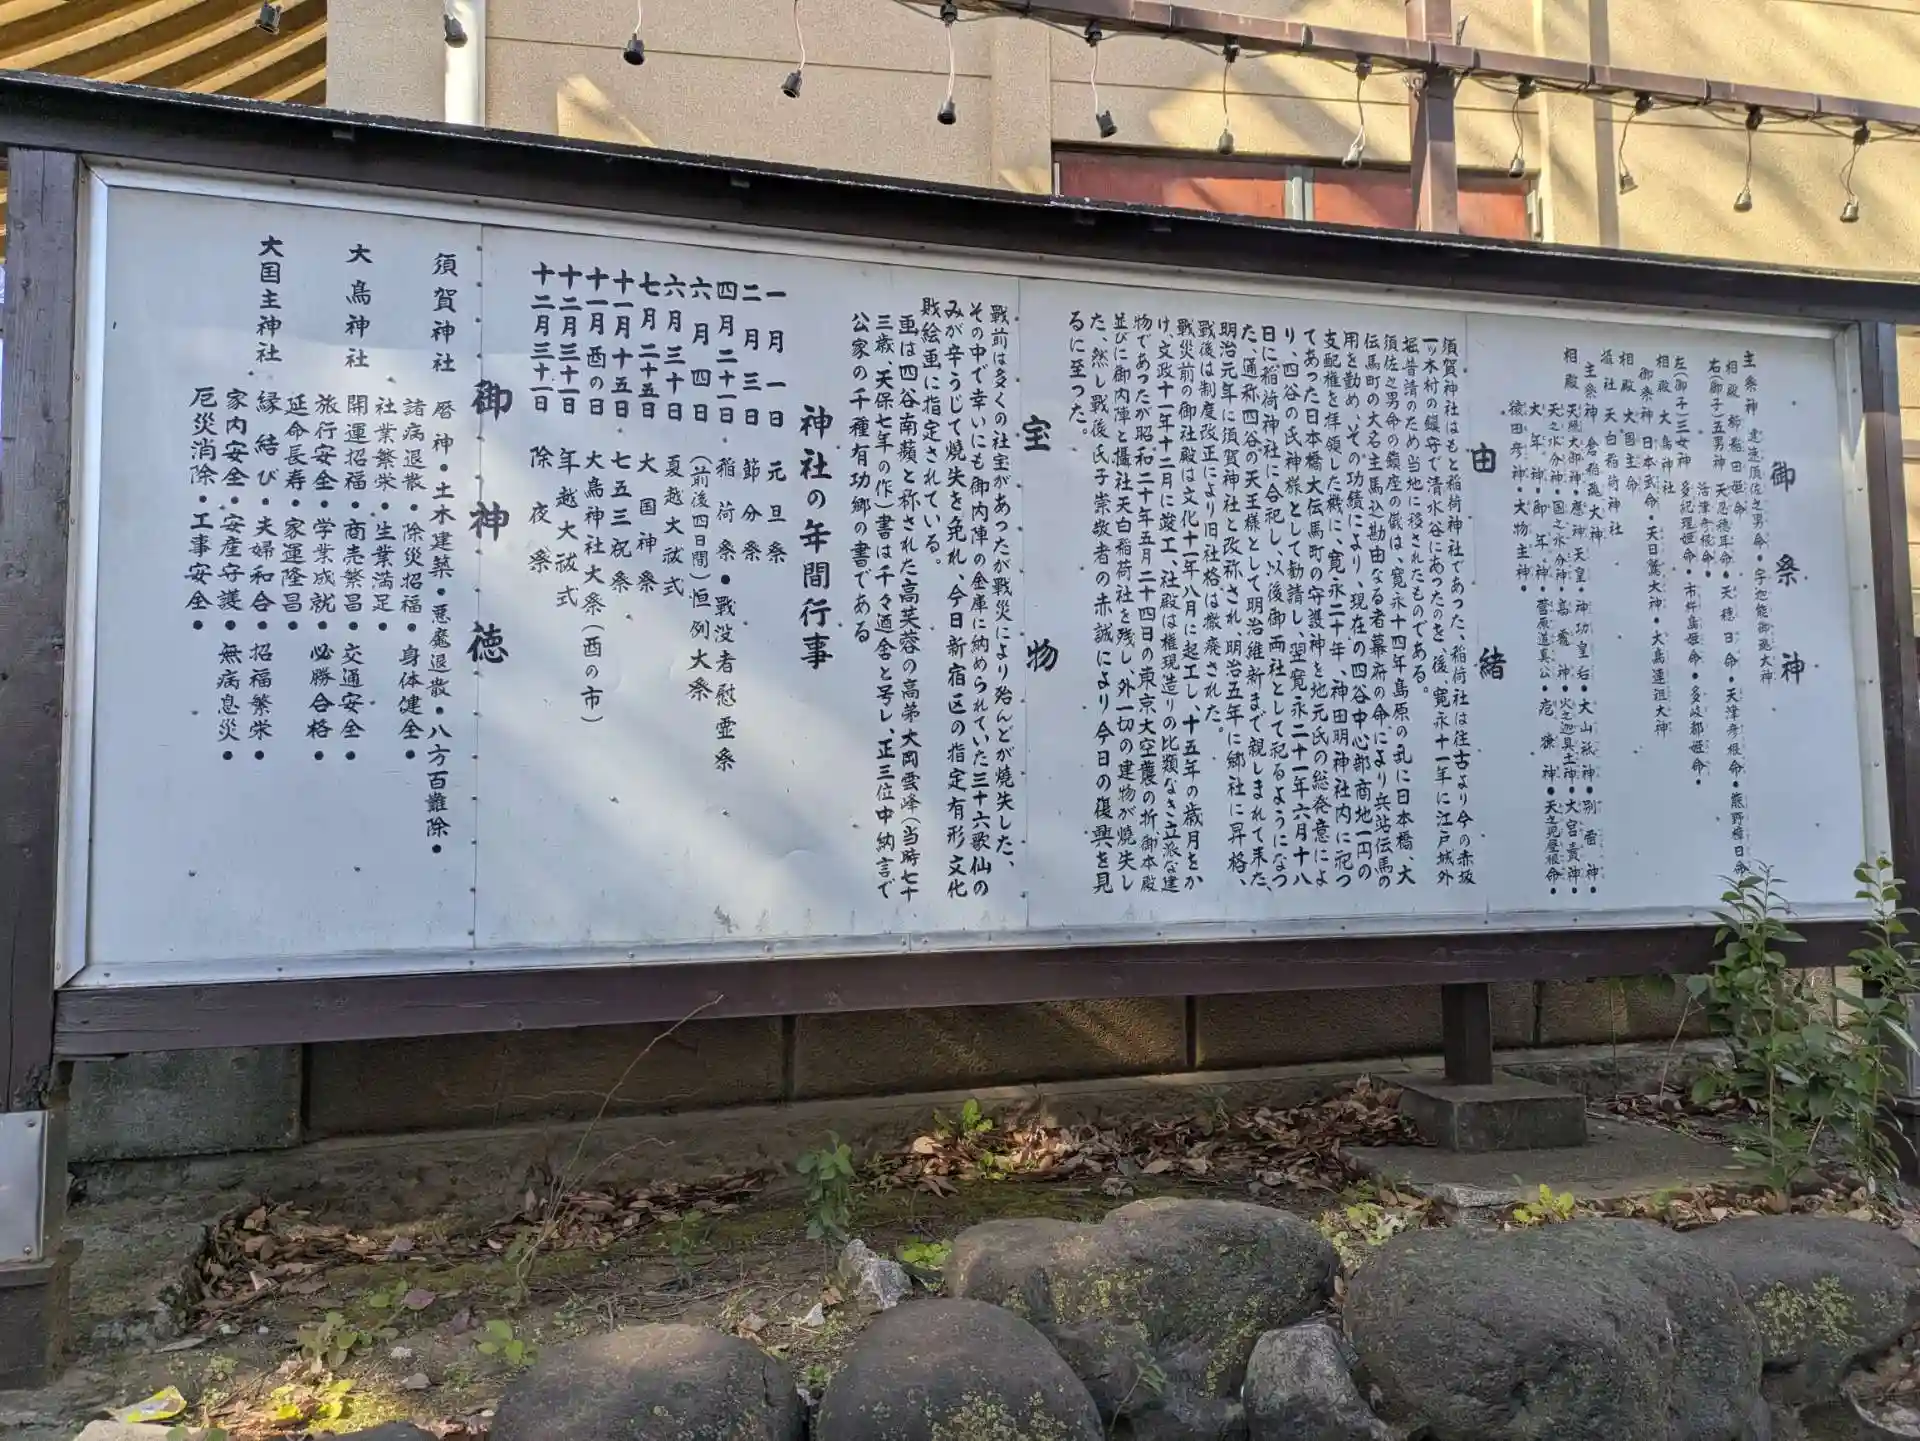 御祭神
主祭神 建速須佐之男命・宇迦能御魂大神
相殿 櫛稲田姫命
右(御子)五男神 天忍穂耳命・天穂日命・天津彦根命・熊野樟日命
活津彦根命・
左(御子)三女神 多紀理姫命・市杵島姫命・多岐都姫命・
相殿 大鳥神社
御祭神 日本武命・天日鷲大神・大鳥連祖大神
相殿 大国主命
摂社 天白稲荷神社
主祭神 倉稲魂大神
相殿 天照大御神・應神天皇・神功皇后・大山祇神・別雷神・
天之水分神・国之水分神・高龗神・火之迦具土神・大宮賣神・
大年神・御年神・菅原道真公・疱瘡神・天之児屋根命・
猿田彦神・大物主神・
由緒
須賀神社はもと稲荷神社であった、稲荷社は往古より今の赤坂
一ッ木村の鎮守で清水谷にあったのを、後、寛永十一年に江戸城外
堀普請のため当地に移されたものである。
須佐之男命の鎮座の儀は、寛永十四年島原の乱に日本橋、大
伝馬町の大名主馬込勘由なる者幕府の命により兵站伝馬の
用を勤め、その功績により、現在の四谷中心部商地一円の
支配権を拝領した機に、寛永二十年、神田明神社内に祀っ
てあった日本橋大伝馬町の守護神を地元氏の総発意によ
り、四谷の氏神様として勧請し、翌寛永二十一年六月十八
日に稲荷神社に合祀し、以後御両社として祀るようになっ
た、通称四谷の天王様として明治維新まで親しまれて来た、
明治元年に須賀神社と改称され、明治五年に郷社に昇格、
戦後は制度改正により旧社格は撤廃された。
戦災前の御社殿は文化十一年八月に起工し、十五年の歳月をか
け、文政十一年十二月に竣工、社殿は権現造りの比類なき立派な建
物であったが昭和二十年五月二十四日の東京大空襲の折、御本殿
並びに御内陣と攝社天白稲荷社を残し外一切の建物が焼失し
た、然し戦後氏子崇敬者の赤誠により今日の復興を見
るに至った。
宝物
戰前は多くの社宝があったが戰災により殆んどが焼失した、
その中で幸いにも御内陣の金庫に納められていた三十六歌仙の
みが辛うじて焼失を免れ、今日新宿区の指定有形文化
財絵画に指定されている。
画は四谷南蘋と称された高芙蓉の高弟大岡雲峰(当時七十
三歳、天保七年の作)書は千々廼舎と号し、正三位中納言で
公家の千種有功郷の書である
神社の年間行事
一月一日 元旦祭
二月三日 節分祭
四月二十一日 稲荷祭・戰没者慰霊祭
六月四日 (前後四日間)恒例大祭
六月三十日 夏越大祓式
七月二十五日 大国神祭
十一月十五日 七五三祝祭
十一月酉の日 大鳥神社大祭(酉の市)
十二月三十一日 年越大祓式
十二月三十一日 除夜祭
御神徳
須賀神社 厝神・土木建築・悪魔退散・八方百難除・
諸病退散・除災招福・身体健全・
社業繁栄・生業満足・
大鳥神社 開運招福・商売繁昌・交通安全・
旅行安全・学業成就・必勝合格・
延命長寿・家運隆昌・
大国主神社 縁結び・夫婦和合・招福繁栄・
家内安全・安産守護・無病息災・
厄災消除・工事安全・